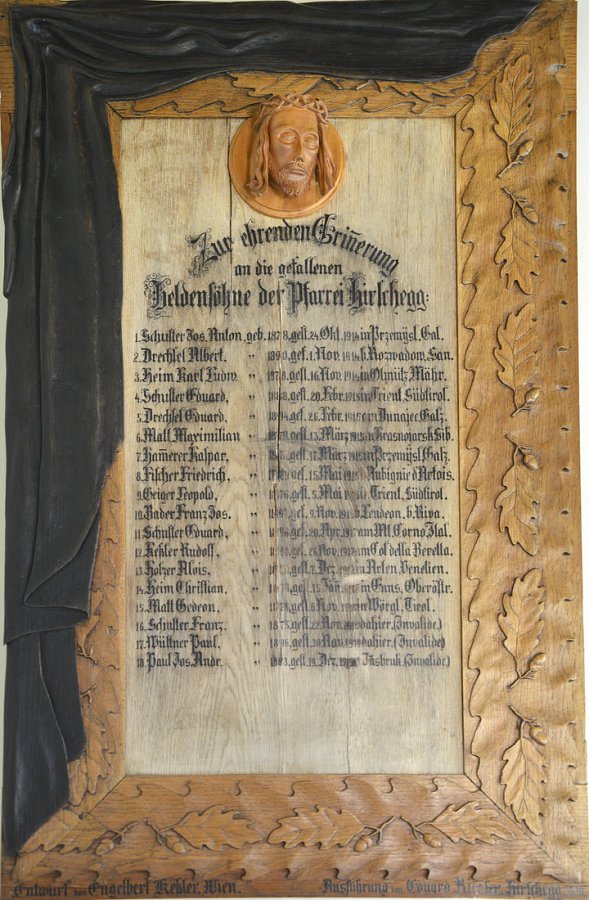 Zur ehrenden Erinnerung
an die gefallenen
Heldensöhne der Pfarrei Hirschegg:
1. Schuster Jos. Anton, geb. 1878, gest. 24. Okt. 1914 in Przemysl, Gal.
2. Drechsel Albert, " gef. 1. Nov. 1914 b. Rozwadow, San.
3. Heim Karl Ludw. " 1878, gest. 16. Nov. 1914 in Olmütz, Mähr.
4. Schuster Eduard, " gest. 20. Febr. 1915 in Trient, Südtirol.
5. Drechsel Eduard, " 1894, gef. 26. Febr. 1915 Dunajec, Galz.
6. Matt Maximilian " 1879, gest. 13. März 1915 in Krasnojarsk, Sib.
7. Ham̄erer Kaspar, " gest. 17. März in Przemysl, Galz.
8. Fischer Friedrich, " gef. 15. Mai 1915 Aubignie d'Artois.
9. Geiger Leopold, " 1876, gest. 5. Mai Trient, Südtirol.
10. Bader Franz Jos. " gef. 9. Nov. b. Lendeon, b. Riva.
11. Schuster Eduard, " gef. 20. Apr. am Mt. Corno, Ital.
12. Keßler Rudolf, " gef. 25. Nov. 1917 am Col della Beretta.
13. Holzer Alois, " gest. 7. Dez. in Arten, Venetien.
14. Heim Christian, " gest. 15. Jän. in Enns, Oberöstr.
15. Matt Gedeon, " gest. 6. Nov. in Wörgl, Tirol.
16. Schuster Franz, " 1875, gest. 22. Nov. dahier, (Invalide)
17. Wüstner Paul, " 1896, gest. 30. Nov. dahier, (Invalide)
18. Paul Jos. Andr. " 1883, gest. 19. Dez. Insbruk, (Invalide)
Entwurf von Engelbert Keßler, Wien. Ausführung von Eduard Hirschegg